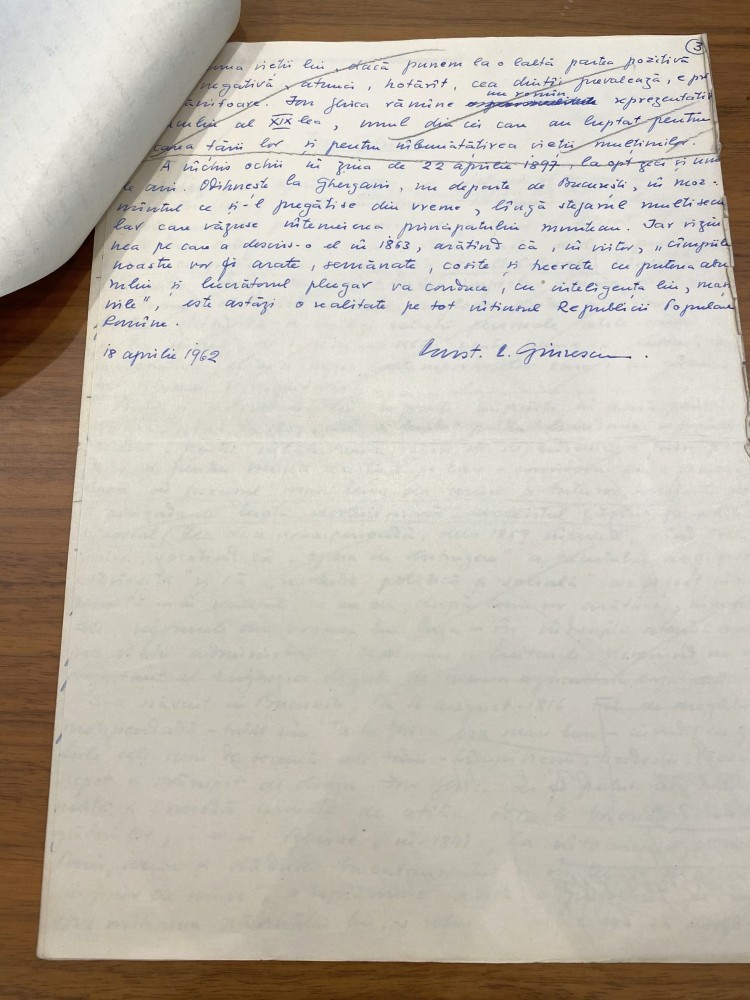 3
vieții lui, dacă punem la o laltă partea pozitivă
negativă, atunci, hotărît, cea dintîi prevalează, e pre
vănitoare. Ion Ghica rămîne un romîn reprezentativ
al XIX lea, unul din cei care au luptat pentru
țării lor și pentru îmbunătățirea vieții mulțimilor.
A închis ochii în ziua de 22 aprilie 1897, la opt zeci și unu
de ani. Odihnește la Ghergani, nu departe de București, în mor-
mîntul ce și-l pregătise din vreme, lîngă stejarul multisecu
lar care văzuse întemeierea principatului muntean. Iar viziu
nea pe care a descris-o el în 1863, arătînd că, în viitor, „cîmpiile
noastre vor fi arate, semănate, cosite și treerate cu puterea abu
rului și lucrătorul plugar va conduce, cu inteligența lui, mași
nile", este astăzi o realitate pe tot întinsul Republicii Populare
Romîne.
18 aprilie 1962 Const. C. Giurescu.